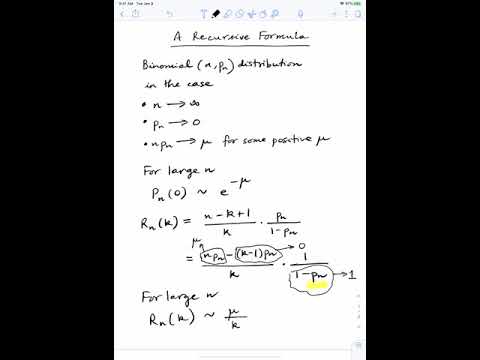 9:41 AM Tue Jan 2
A Recursive Formula
Binomial (n, pₙ) distribution
in the case
• n → ∞
• pₙ → 0
• npₙ → μ for some positive μ
For large n
Pₙ(0) ~ e^{-μ}
Rₙ(k) = \frac{n-k+1}{k} · \frac{pₙ}{1-pₙ}
μₙ → 0
= \frac{npₙ-(k-1)pₙ}{k} · \frac{1}{1-pₙ} → 1
For large n
Rₙ(k) ~ \frac{μ}{k}